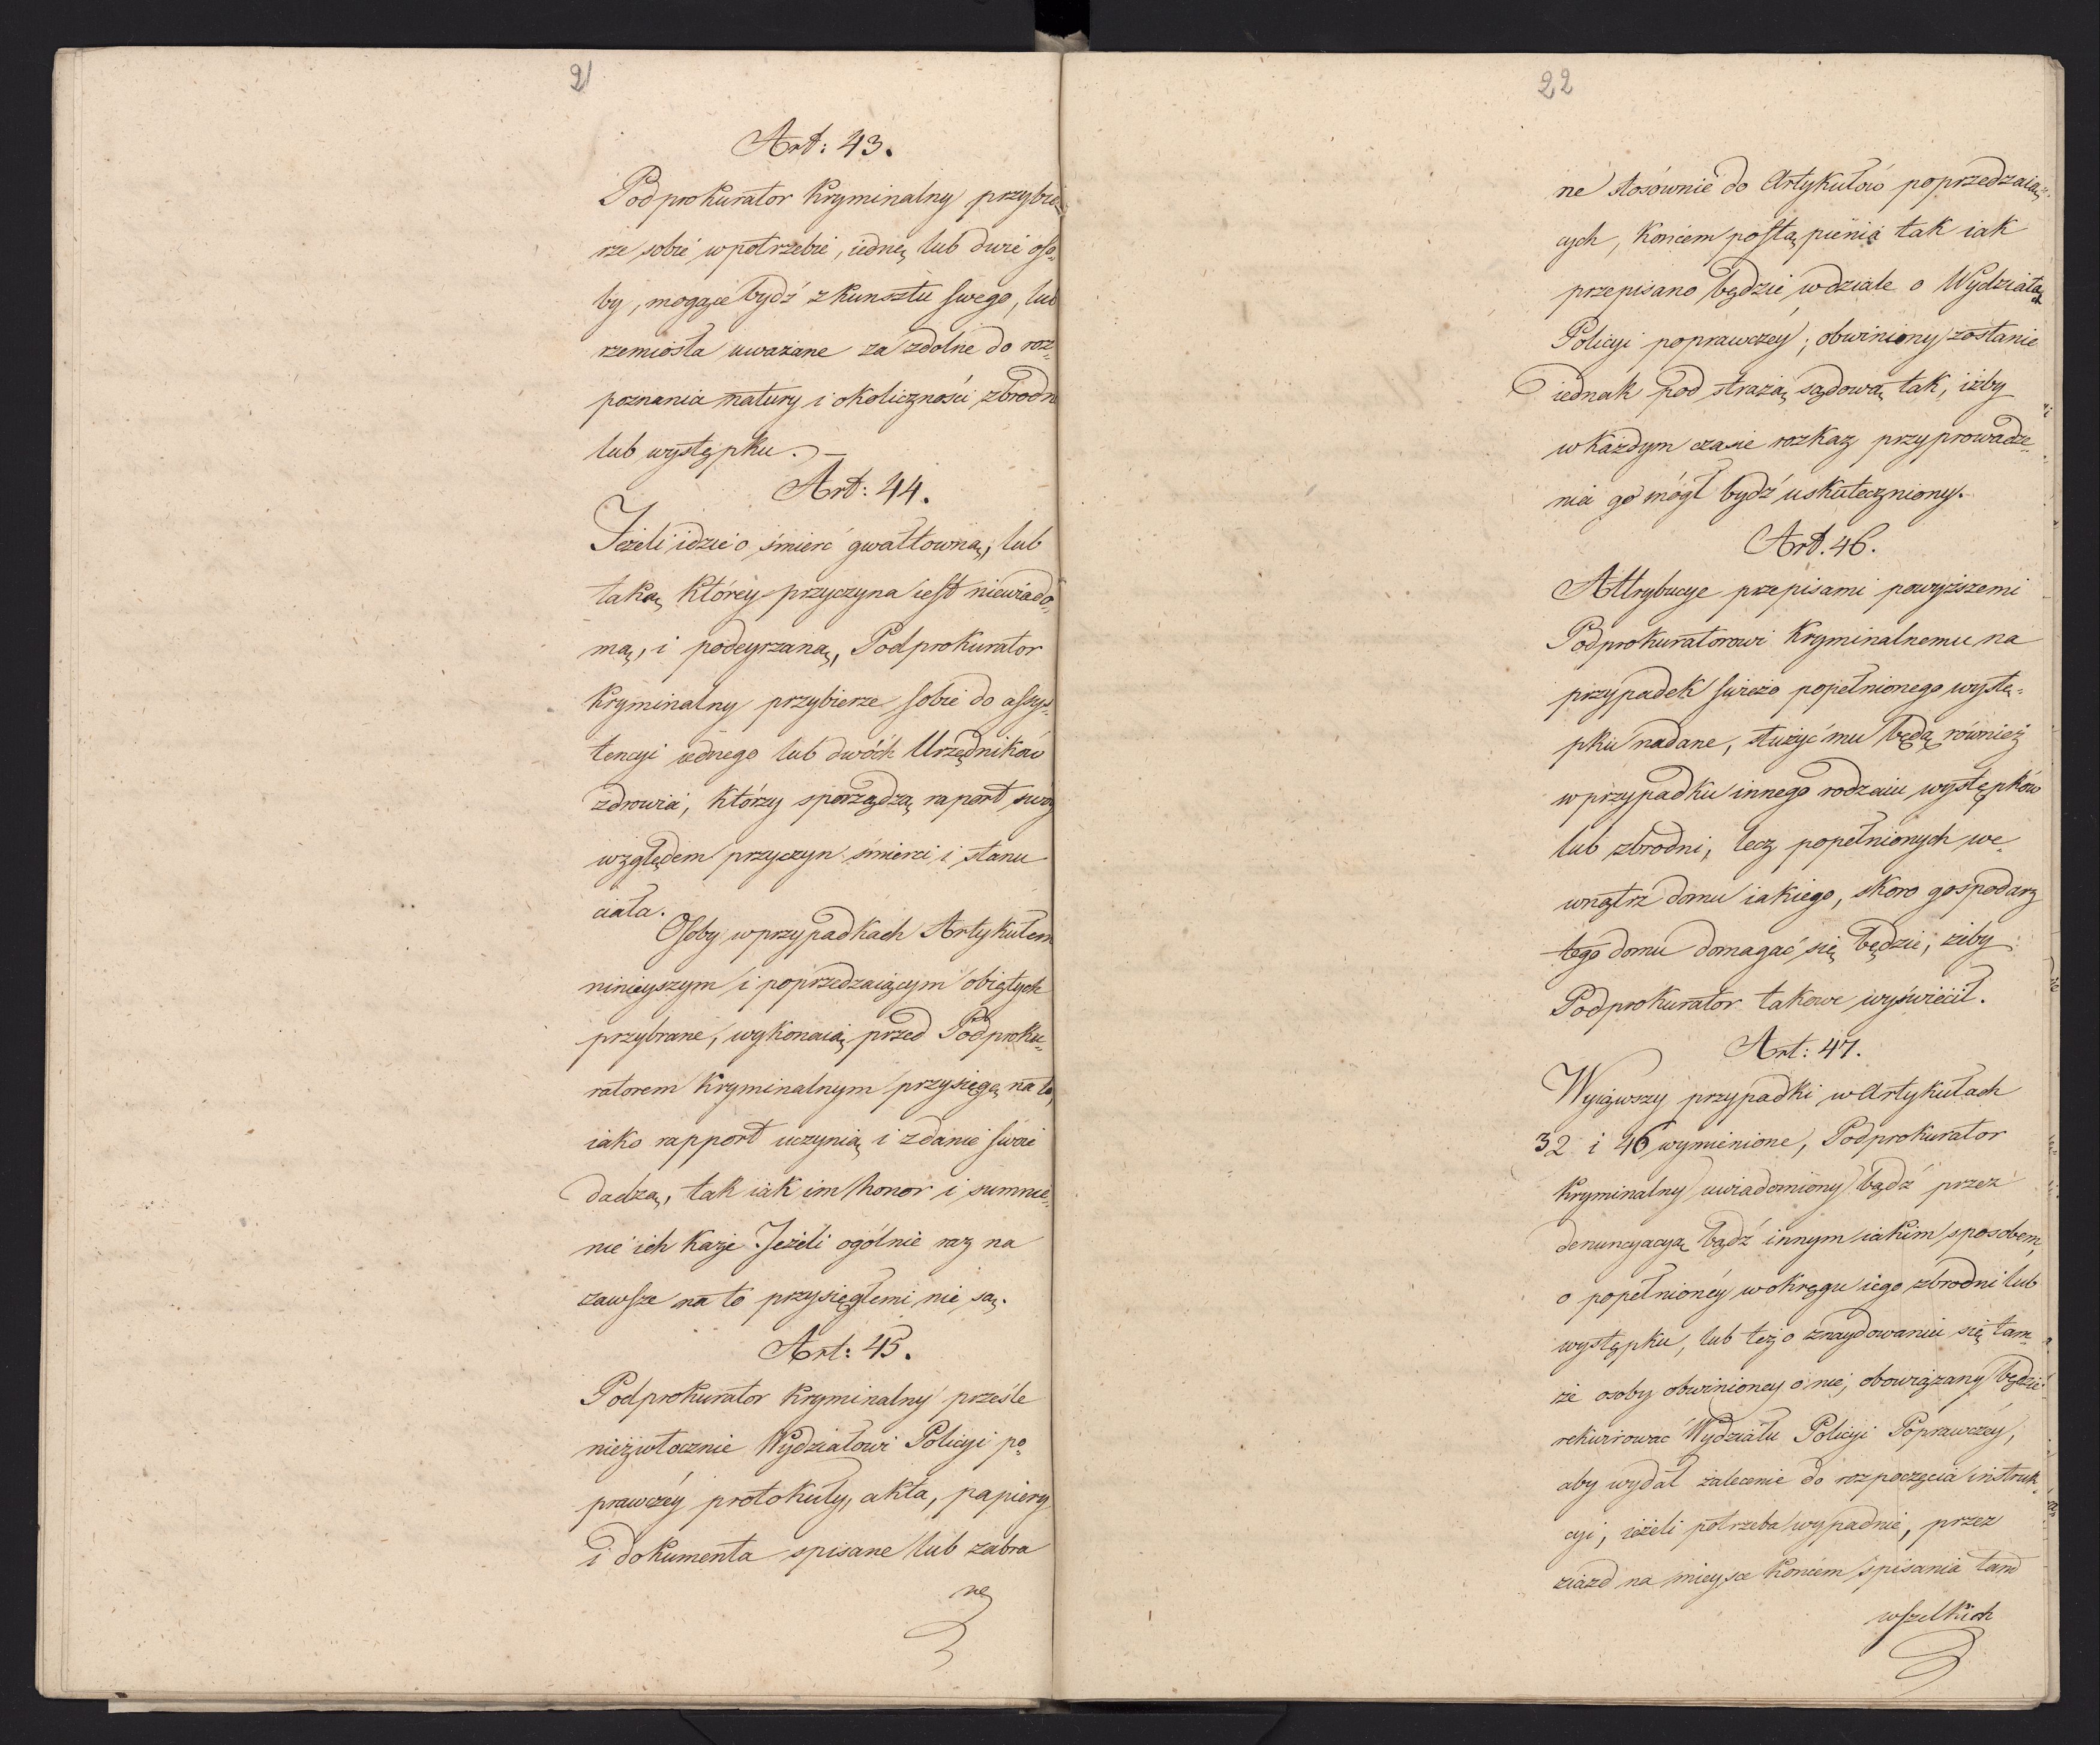 21
Art: 43.
Podprokurator Kryminalny przybie-
rze sobie w potrzebie, iednę lub dwie oso-
by, mogące bydź z kunsztu swego, lub
rzemiosła uważane za zdolne do roz-
poznania natury i okoliczności zbrodni
lub występku. —
Art: 44.
Jeżeli idzie o śmierć gwałtowną, lub
taką, którey przyczyna iest niewiado-
mą, i podeyrzaną, Podprokurator
Kryminalny przybierze sobie do assys-
tencyi iednego lub dwóch Urzędników
zdrowia, którzy sporządzą raport swóy
względem przyczyn śmierci i stanu
ciała.
Osoby w przypadkach Artykułem
ninieyszym i poprzedzaiącym obiętych
przybrane, wykonaią przed Podproku-
ratorem Kryminalnym przysięgę na to,
iako rapport uczynią i zdanie swoie
dadzą, tak iak im honor i sumnie-
nie ich każe. Jeżeli ogólnie raz na
zawsze na to przysięgłemi nie są.
Art: 45.
Podprokurator Kryminalny prześle
niezwłocznie Wydziałowi Policyi po-
prawczéy protokuły, akta, papiery
i dokumenta spisane lub zabra
ne
22
ne stosownie do Artykułów poprzedzaią-
cych, końcem postąpienia tak iak
przepisano będzie w dziale o Wydziałach
Policyi poprawczey; obwiniony zostanie
iednak pod strażą sądową tak, iżby
w każdym czasie rozkaz przyprowadze-
nia go mógł bydź uskuteczniony.
Art. 46.
Attrybucye przepisami powyższemi
Podprokuratorowi Kryminalnemu na
przypadek świeżo popełnionego wystę-
pku nadane, służyć mu będą również
w przypadku innego rodzaiu występków
lub zbrodni, lecz popełnionych we-
wnątrz domu iakiego, skoro gospodarz
tego domu domagać się będzie, żeby
Podprokurator takowe wyświecił.
Art: 47.
Wyiąwszy przypadki w Artykułach
32 i 46 wymienione, Podprokurator
Kryminalny uwiadomiony bądź przez
denuncyacyą bądź innym iakim sposobem,
o popełnionéy w okręgu iego zbrodni lub
występku, lub też o znaydowaniu się tam-
że osoby obwinioney o nie, obowiązany będzie
rekwirować Wydziału Policyi Poprawczéy,
aby wydał zalecenie do rozpoczęcia instruk-
cyi, ieżeli potrzeba wypadnie, przez
ziazd na mieysce końcem spisania tamo
wszelkich